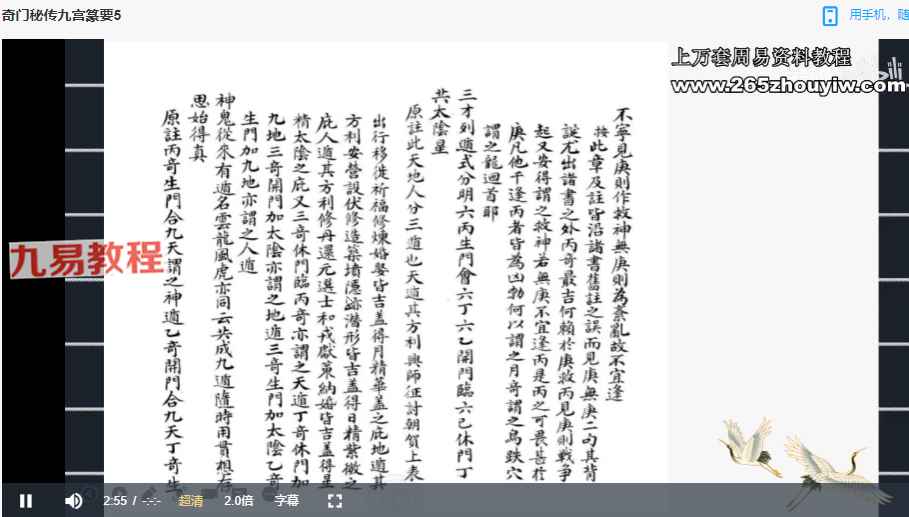 奇门秘传九宫篡要5
用手机，随
上万套周易资料教程
www.265zhouyiw.com
九易教程
不寧見庚則作救神無庚則為紊亂故不宜逢
按此章及註皆沿諸書舊註之誤而見庚無庚二句其背
誕尤出諸書之外丙奇最吉何賴於庚救丙見庚則戰爭
起又安得謂之救神若無庚不宜逢丙是丙之可畏甚於
庚凡他干逢丙者皆為凶勃何以謂之月奇謂之鳥跌穴
謂之龍迴首耶
三才列遁式分明六丙生門會六丁六乙開門臨六己休門丁
共太陰星
原註此天地人分三遁也天遁其方利興師征討朝賀上表
出行移徙祈福修煉婚娶皆吉蓋得月精華蓋之庇地遁其
方利安營設伏修造築墳隱跡潛形皆吉蓋得日精紫微之
庇人遁其方利修丹還元選士和戎獻策納婚皆吉蓋得星
精太陰之庇又三奇休門臨丙奇亦謂之天遁丁奇休門加
九地三奇開門加太陰亦謂之地遁三奇生門加太陰乙奇
生門加九地亦謂之人遁
神鬼從來有遁名雲龍風虎亦同云共成九遁隨時用貫想存
思始得真
原註丙奇生門合九天謂之神遁乙奇開門合九天丁奇生
2:55 / -:-:-
超清
2.0倍
字幕